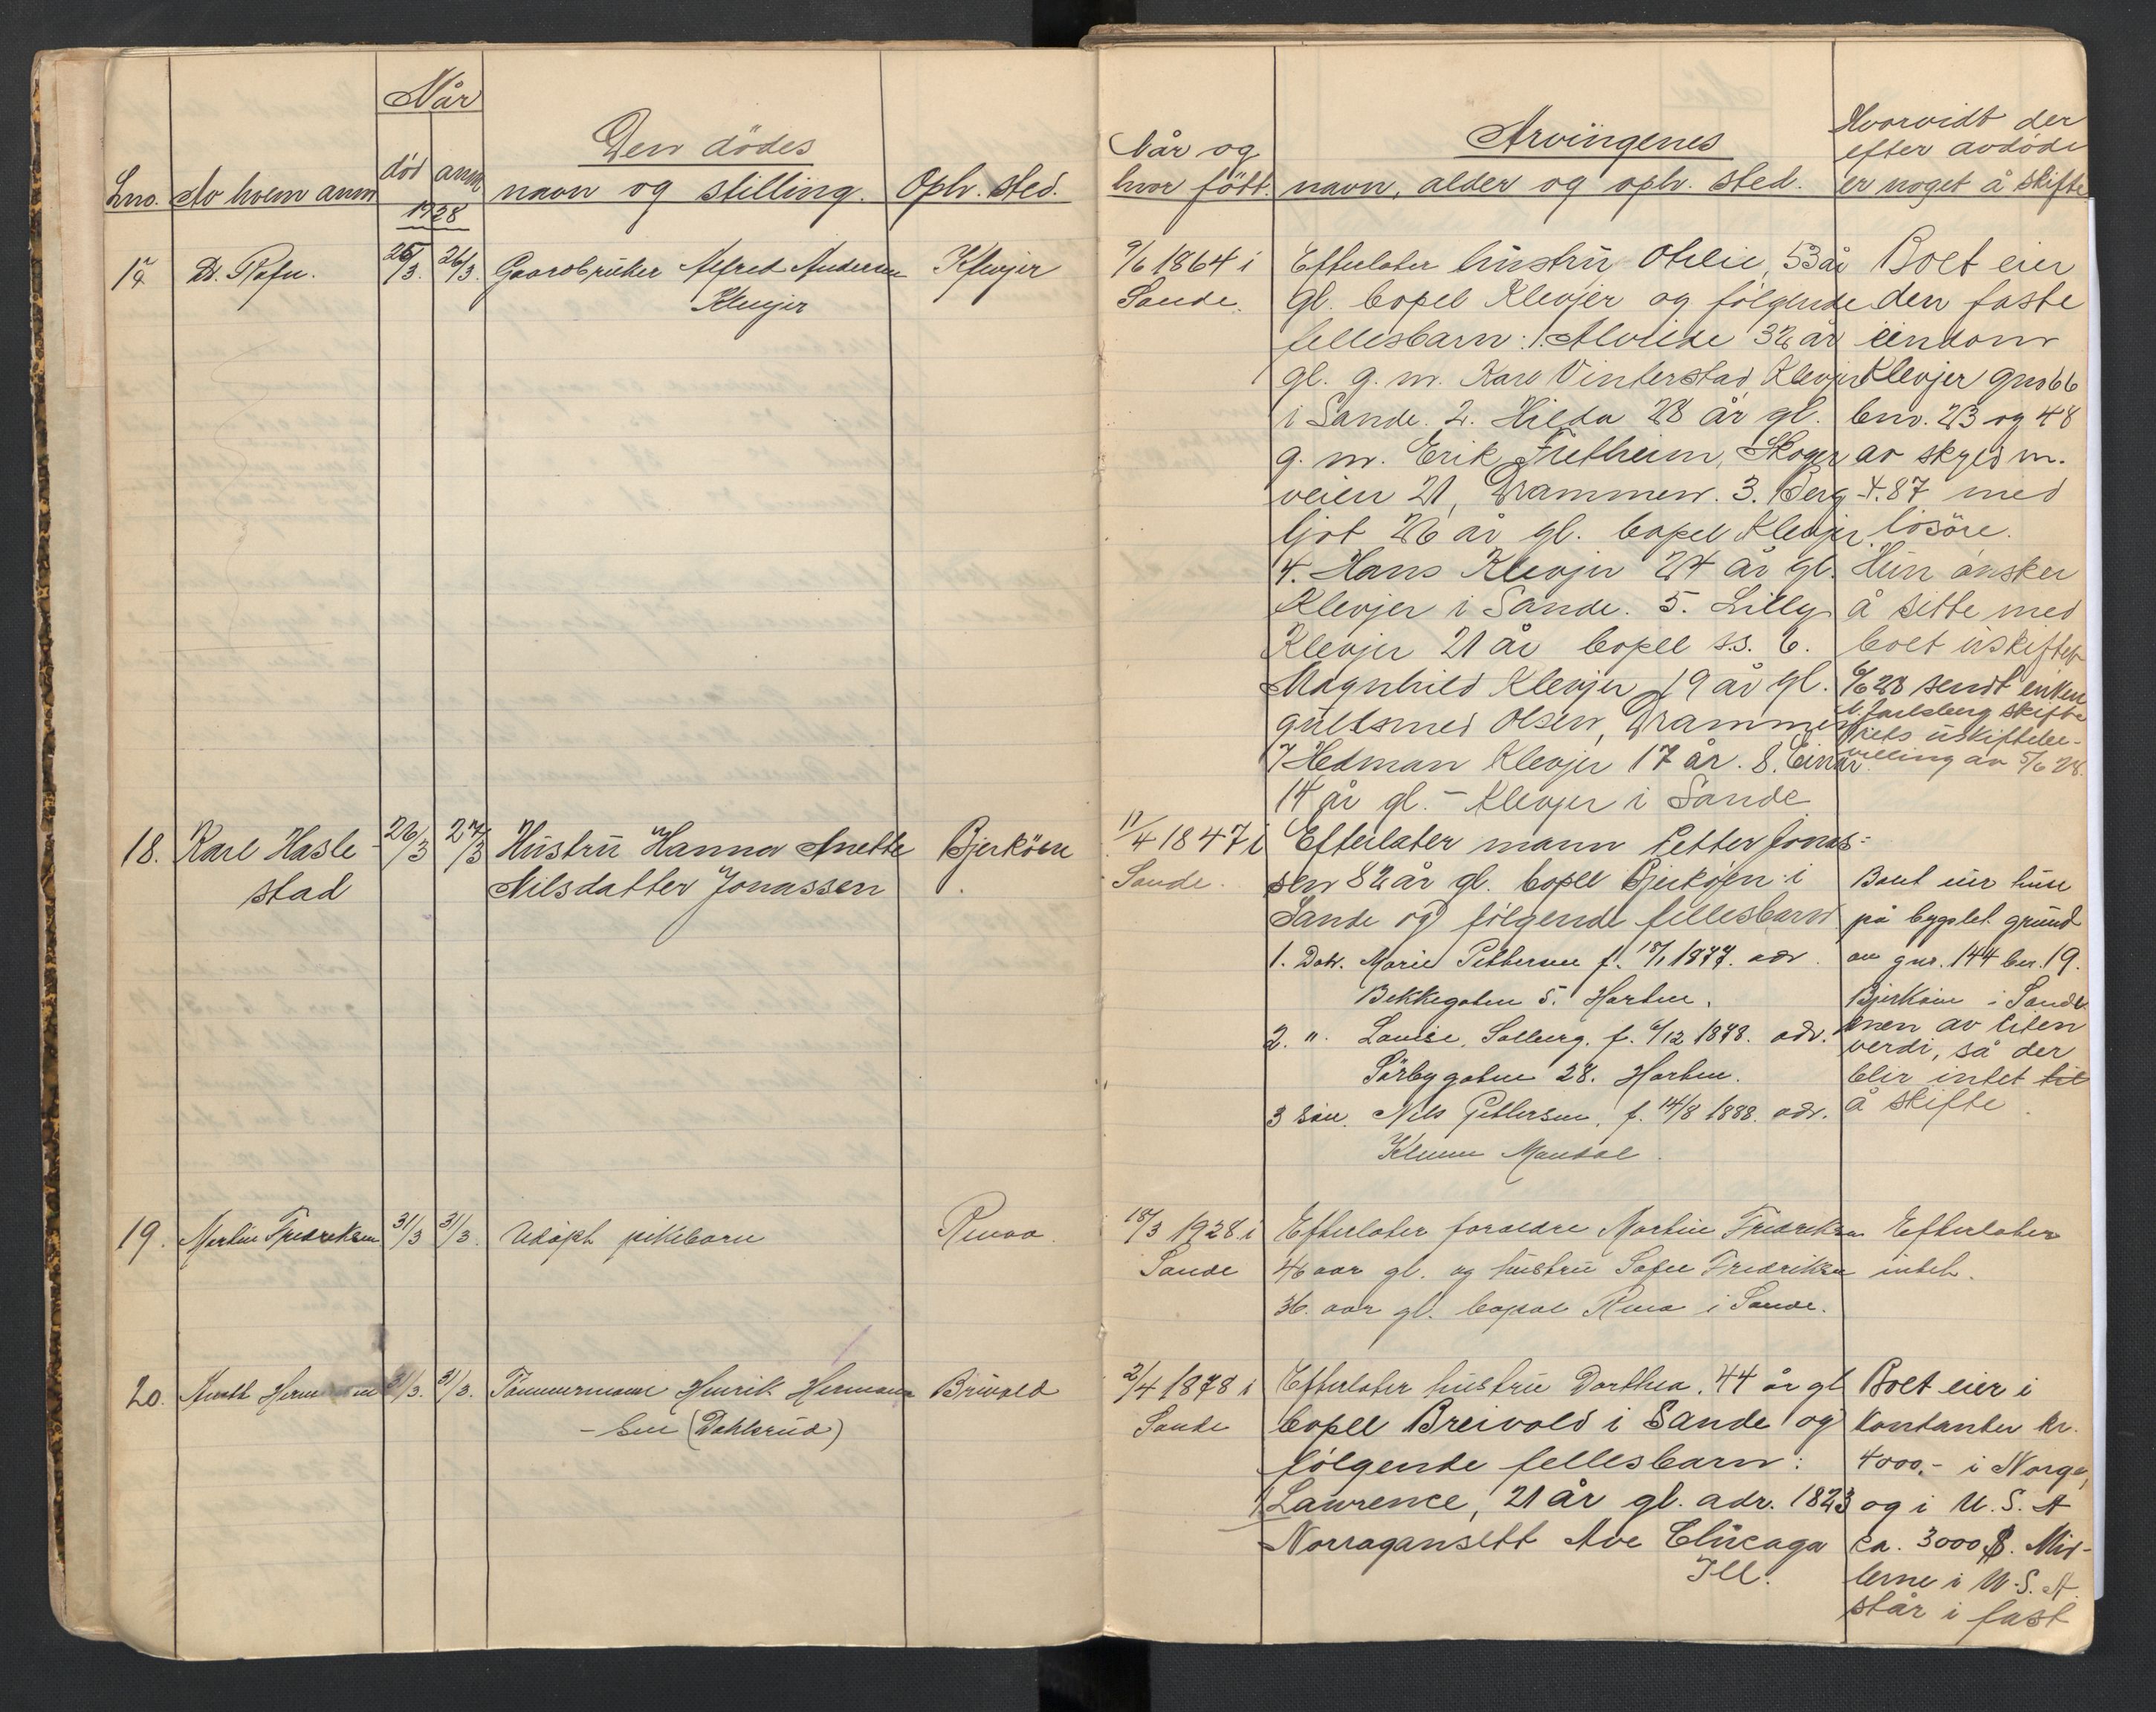 Når
Den dödes
Lno. Av hvem anm död anm navn og stilling. Oph. sted.
Når og hvor född.
Arvingenes
navn, alder og oph. sted.
Hvorvidt der
efter avdöde
er noget å skifte
1928
17 Dr. Rafn. 26/3. 26/3. Gaardbruker Alfred Andersen Klevjer
Klevjer
9/6 1864 i
Sande.
Efterlater hustru Otilie, 53 år
gl. bopel Klevjer og fölgende
fellesbarn: 1. Alvilde 32 år
gl. g. m. Karl Vinterstad, Klevjer
i Sande. 2. Hilda 28 år gl.
g. m. Erik Fretheim, Skoger
veien 21, Drammen. 3. Berg
ljot 26 år gl. bopel Klevjer.
4. Hans Klevjer 24 år gl.
Klevjer i Sande. 5. Lilly
Klevjer 21 år bopel s.s. 6.
Magnhild Klevjer 19 år gl.
gullsmed Olsen, Drammen
7 Hedman Klevjer 17 år. 8. Einar
14 år gl. - Klevjer i Sande
Boet eier
den faste
eiendom
Klevjer gno 66
bno. 23 og 48
av skyld m.
4.87 med
lösöre.
Hun önsker
å sitte med
boet uskiftet
6/6 28 sendt enken
N. Jarlsberg skifte
retts uskiftebe-
villing av 5/6 28.
18. Karl Hasle- 26/3 27/3 Hustru Hanna Anette Bjerköen
stad Nilsdatter Jonassen
11/4 1847 i
Sande.
Efterlater mann Petter Jonas-
sen 82 år gl. bopel Bjerköen i
Sande og fölgende fellesbarn
1. Datr. Marie Pettersen f. 18/1 1877. adr.
Bekkegaten 5. Horten.
2. " Louise Solberg. f. 6/12 1878. adr.
Sörbygaten 28. Horten.
3 sön. Nils Pettersen, f. 14/8 1888. adr.
Mandal.
Boet eier huse
på bygslet grund
av gnr. 144 bnr. 19.
Bjerköen i Sande
men av liten
verdi, så der
blir intet til
å skifte.
19. Martin Fredriksen 31/3 31/3. Udöpt pikebarn Revaa.
18/3 1928 i
Sande
Efterlater foraeldre Martin Fredriksen
46 aar gl. og hustru Sofie Fredriksen
36. aar gl. bopel Revaa i Sande.
Efterlater
intet.
20. 31/3. 31/3. Tömmermann Henrik Herman- Breivold
sen (Dahlsrud)
2/4 1878 i
Sande
Efterlater hustru Dorthea. 44 år gl
bopel Breivold i Sande og
fölgende fellesbarn:
1 Lawrence, 21 år gl. adr. 1823
Norragansett Ave Chicago
Ill.
Boet eier i
kontanter kr.
4000,- i Norge,
og i U. S. A
ca. 3000 $. Mid-
lerne i U. S. A.
står i fast